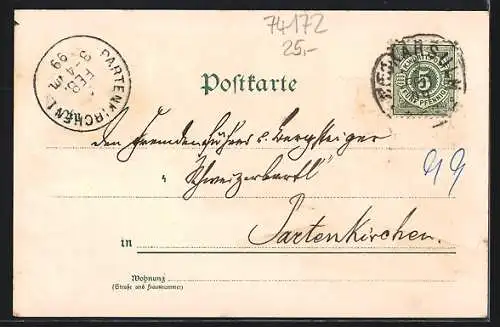 74172
25,-
PARTENKIRCHEN
FEB.
99
NECKARSULM
5
FÜNF PFENNIG
Postkarte
den Fremdenführer u. Bergsteiger
"Schweizerbartl"
99
in Partenkirchen.
Wohnung
(Straße und Hausnummer)